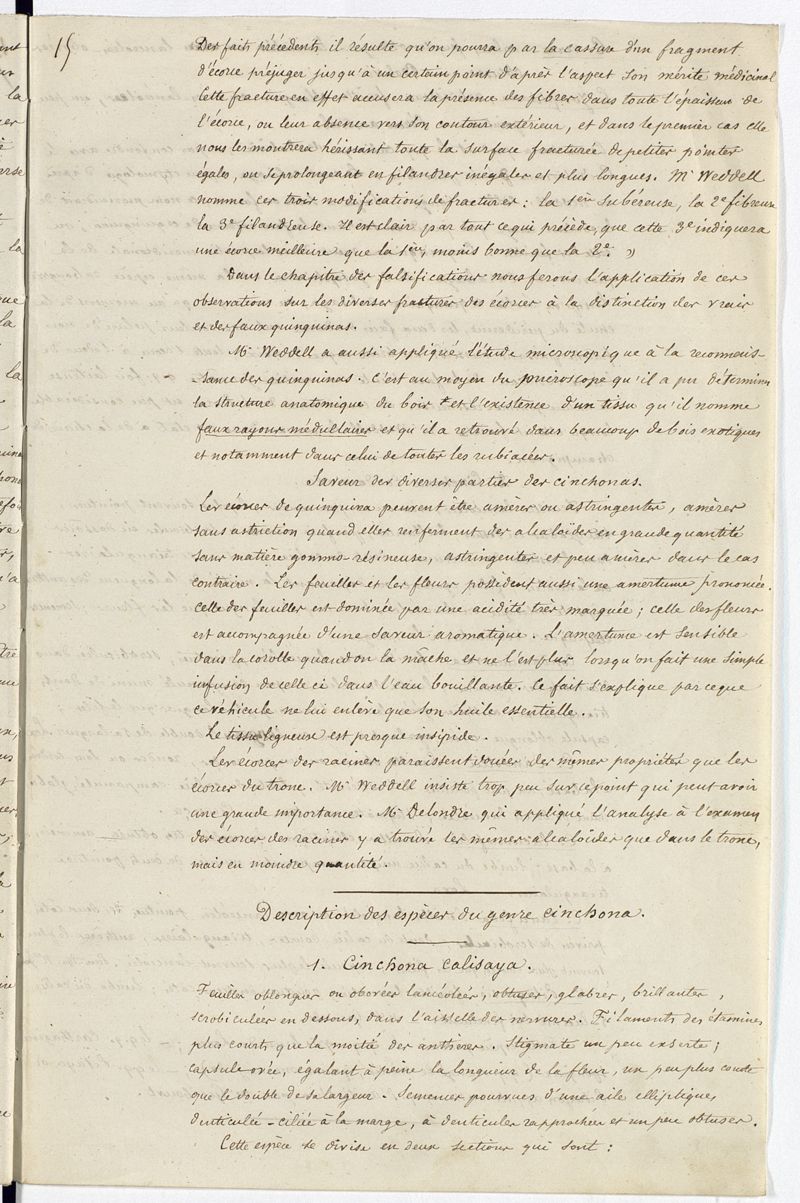 15
Des faits précédents il résulte qu'on pourra par la cassure d'un fragment
d'écorce préjuger jusqu'à un certain point d'après l'aspect son mérite médicinal
Cette fracture en effet accusera la présence des fibres dans toute l'épaisseur de
l'écorce, ou leur absence vers son contour extérieur, et dans le premier cas elle
nous les montrera hérissant toute la surface fracturée de petites pointes
égales, ou se prolongeant en filandres inégales et plus longues. Mr Weddell
nomme ces trois modifications de fractures : la 1ère subéreuse, la 2e fibreuse
la 3e filandreuse. Il est clair par tout ce qui précède, que cette 3e indiquera
une écorce meilleure que la 1ère, moins bonne que la 2e. »
Dans le chapitre des falsifications nous ferons l'application de ces
observations sur les diverses fractures des écorces à la distinction des vrais
et des faux quinquinas.
Mr Weddell a aussi appliqué l'étude microscopique à la reconnais-
-sance des quinquinas. C'est au moyen du microscope qu'il a pu déterminer
la structure anatomique du bois et l'existence d'un tissu qu'il nomme
faux rayons médullaires et qu'il a retrouvé dans beaucoup de bois exotiques
et notamment dans celui de toutes les rubiacées.
Saveur des diverses parties des cinchonas.
Les écorces de quinquina peuvent être amères ou astringentes, amères
sans astriction quand elles renferment des alcaloïdes en grande quantité
sans matière gommo-résineuse, astringentes et peu amères dans le cas
contraire. Les feuilles et les fleurs possèdent aussi une amertume prononcée.
Celle des feuilles est dominée par une acidité très marquée ; celle des fleurs
est accompagnée d'une saveur aromatique. L'amertume est sensible
dans la corolle quand on la mâche et ne l'est plus lorsqu'on fait une simple
infusion de celle ci dans l'eau bouillante. Ce fait s'explique par ce que
ce véhicule ne lui enlève que son huile essentielle.
Le tissu ligneux est presque insipide.
Les écorces des racines paraissent douées des mêmes propriétés que les
écorces du tronc. Mr Weddell insiste trop peu sur ce point qui peut avoir
une grande importance. Mr Delondre qui appliqué l'analyse à l'examen
des écorces des racines y a trouvé les mêmes alcaloïdes que dans le tronc,
mais en moindre quantité.
Description des espèces du genre cinchona.
1. Cinchona calisaya.
Feuilles oblongues ou obovées lancéolées, obtuses, glabres, brillantes,
scrobiculées en dessous, dans l'aisselle des nervures. Filaments des étamines
plus courts que la moitié des anthères. Stigmate un peu exserte ;
capsule ovée, égalant à peine la longueur de la fleur, un peu plus courte
que le double de sa largeur. Semences pourvues d'une aile elliptique,
denticulée-ciliée à la marge, à denticules rapprochées et un peu obtuses.
Cette espèce se divise en deux sections qui sont :